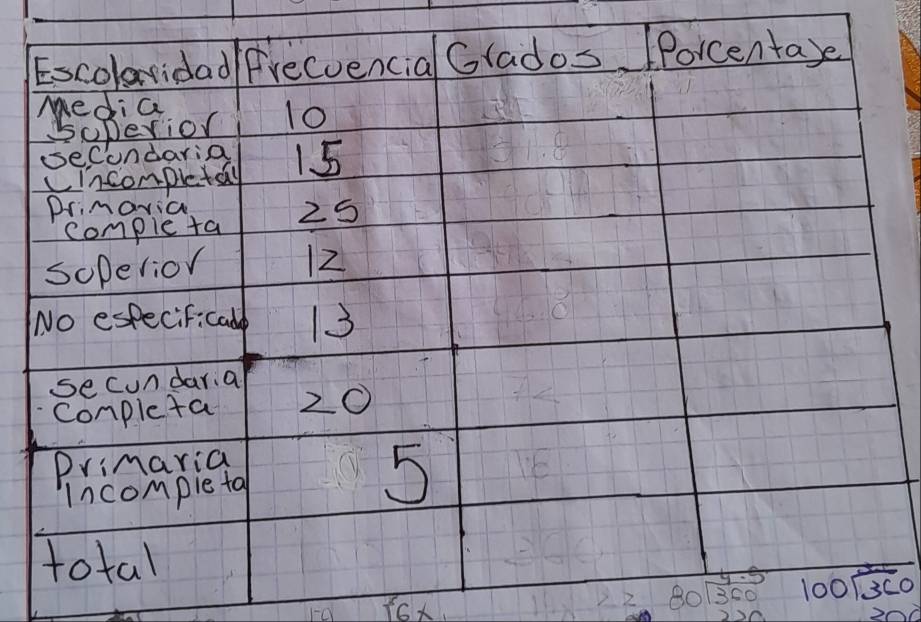 Escolaridad Frecuencia Grados Porcentaje
Media
Superior 10
Secundaria
incompleta 15
Primaria
completa 25
Superior 12
No especificado 13
Secundaria
completa 20
Primaria
incompleta 5
total
80 360 100 360